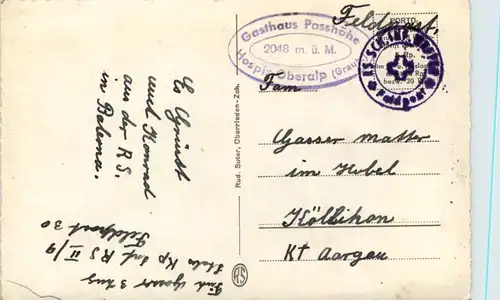 Feldpost.
Gasthaus Passhöhe
2048 m. ü. M.
Hospiz Oberalp (Graub.)
PORTO
Feldpost
Es Grüsst
euch Konrad
aus der R.S.
in Balerna.
Rud. Suter, Oberrieden-Zch.
Fam
Gasser Matter
im Hubel
Kölliken
Kt Aargau
Füs Gasser
Stabs Kp Inf RS II/9
Feldpost 30
RS